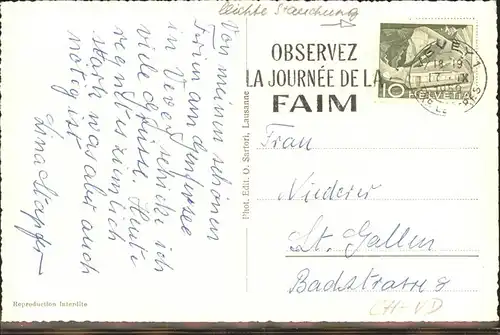 leichte Stauchung
Von meinen schönen
Ferien am Genfersee
in Vevey schicke ich
viele Grüsse. Heute
regnet es ziemlich
stark was aber auch
nötig ist.
Lina Stapfer
Phot. Edit. O. Sartori, Lausanne
Reproduction interdite
OBSERVEZ
LA JOURNÉE DE LA
FAIM
VEVEY 1
18-19
17. IX
10 HELVETIA
Frau
Niederer
St. Gallen
Badstrasse 8
CH-VD